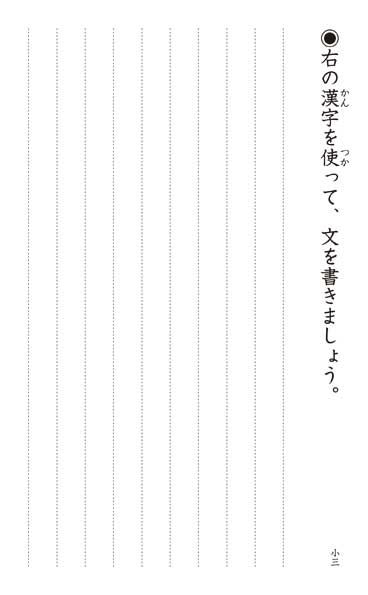 ◉右の漢字を使って、文を書きましょう。
かん
つか
小三